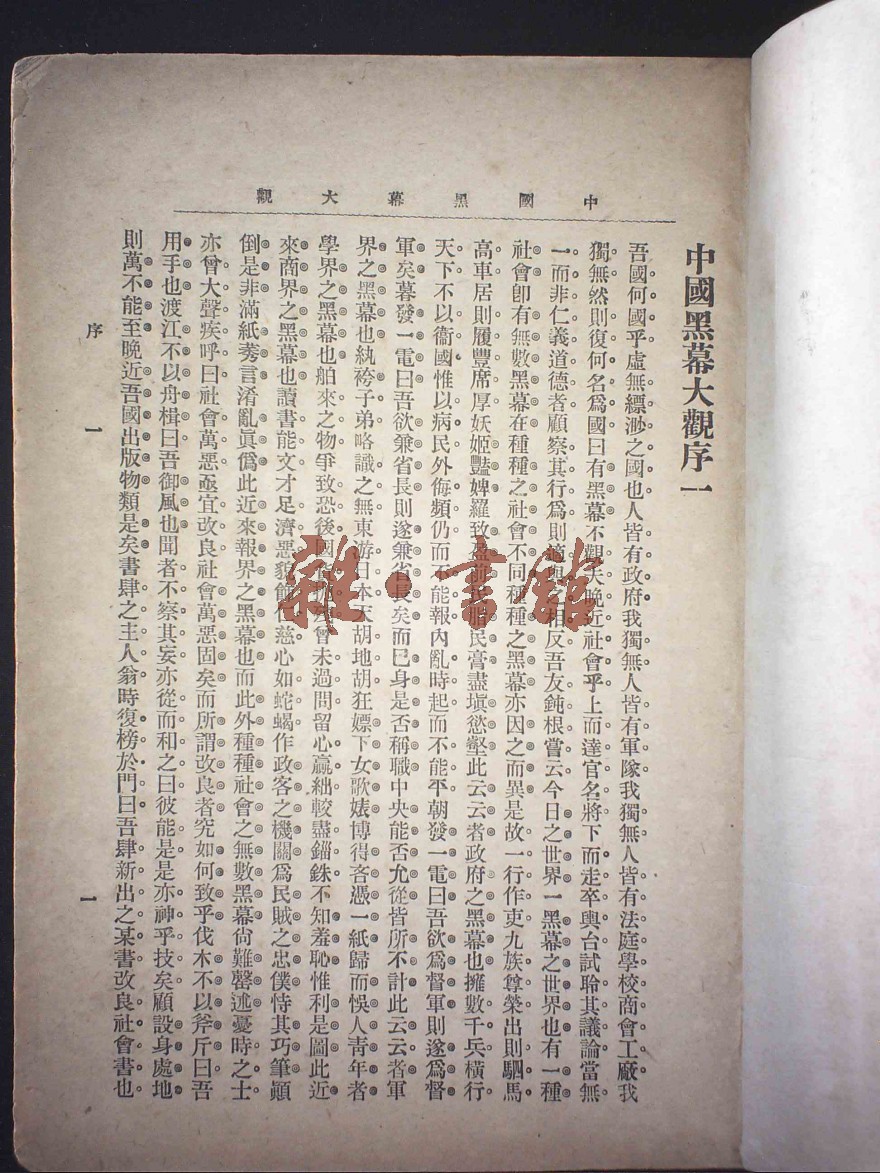 中國黑幕大觀
中國黑幕大觀序一
吾國何國乎虛無縹渺之國也人皆有政府我獨無人皆有軍隊我獨無人皆有法庭學校商會工廠我
獨無然則復何名爲國曰有黑幕不觀夫晚近社會乎上而達官名將下而走卒輿台試聆其議論當無
一而非仁義道德者顧察其行爲則適與之相反吾友鈍根嘗云今日之世界一黑幕之世界也有一種
社會卽有無數黑幕在種種之社會不同種種之黑幕亦因之而異是故一行作吏九族尊榮出則駟馬
高車居則履豐席厚妖姬豔婢羅致盈前民脂民膏盡塡慾壑此云云者政府之黑幕也擁數千兵橫行
天下不以衞國惟以病民外侮頻仍而不能報內亂時起而不能平朝發一電曰吾欲爲督軍則遂爲督
軍矣暮發一電曰吾欲兼省長則遂兼省長矣而巳身是否稱職中央能否允從皆所不計此云云者軍
界之黑幕也紈袴子弟略識之無東游日本天胡地胡狂嫖下女歌婊博得吝憑一紙歸而悞人靑年者
學界之黑幕也舶來之物爭致恐後國曾未過問留心贏絀較盡錙銖不知羞恥惟利是圖此近
來商界之黑幕也讀書能文才足濟惡貌飾仁慈心如蛇蝎作政客之機關爲民賊之忠僕恃其巧筆顚
倒是非滿紙莠言淆亂眞僞此近來報界之黑幕也而此外種種社會之無數黑幕尙難罄述憂時之士
亦曾大聲疾呼曰社會萬惡亟宜改良社會萬惡固矣而所謂改良者究如何致乎伐木不以斧斤曰吾
用手也渡江不以舟楫曰吾御風也聞者不察其妄亦從而和之曰彼能是是亦神乎技矣顧設身處地
則萬不能至晚近吾國出版物類是矣書肆之主人翁時復榜於門曰吾肆新出之某書改良社會書也
序
一
一
雜·書館